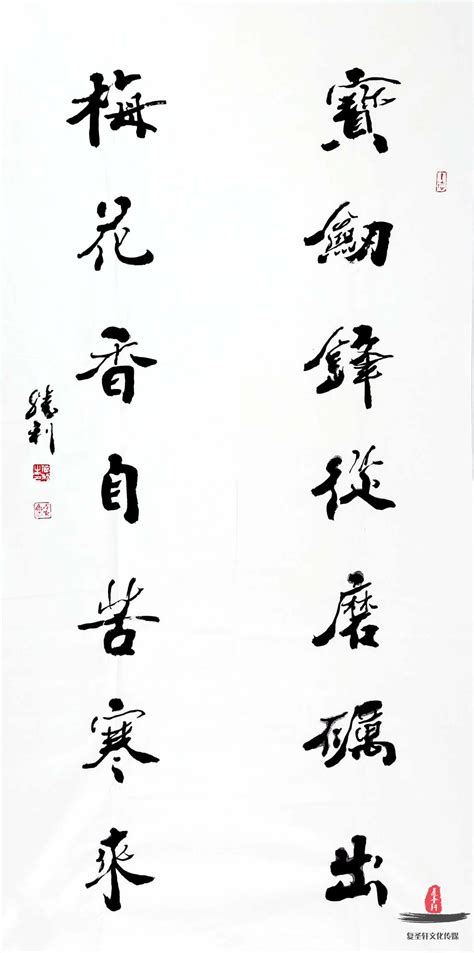 寶劒鋒從磨礪出
梅花香自苦寒來
勝利
复圣轩文化传媒